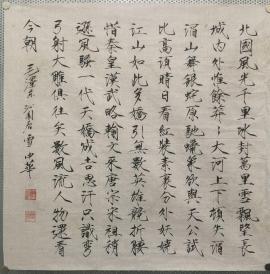 北國風光千里冰封萬里雪飄望長
城内外惟餘莽莽大河上下頓失滔
滔山舞銀蛇原馳蠟象欲與天公試
比高須晴日看紅裝素裹分外妖嬈
江山如此多嬌引無數英雄競折腰
惜秦皇漢武略輸文采唐宗宋祖稍
遜風騷一代天驕成吉思汗只識彎
弓射大雕俱往矣數風流人物還看
今朝 毛澤東 雪